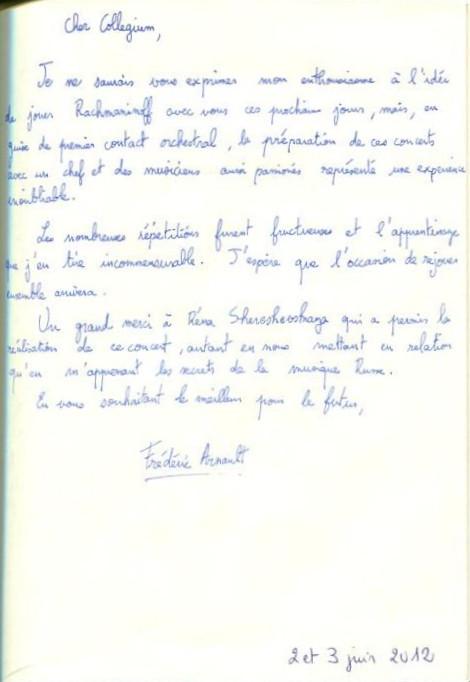 Cher Collegium,
Je ne saurais vous exprimer mon enthousiasme à l'idée
de jouer Rachmaninoff avec vous ces prochains jours, mais, en
guise de premier contact orchestral, la préparation de ces concerts
avec un chef et des musiciens aussi passionés représente une experience
inoubliable.
Les nombreuses répétitions furent fructueuses et l'apprentissage
que j'en tire incommensurable. J'espère que l'occasion de rejouer
ensemble arrivera.
Un grand merci à Réna Shereshevskaya qui a permis la
réalisation de ce concert, autant en nous mettant en relation
qu'en m'apprenant les secrets de la musique Russe.
En vous souhaitant le meilleur pour le futur,
Frédéric Arnault
2 et 3 juin 2012